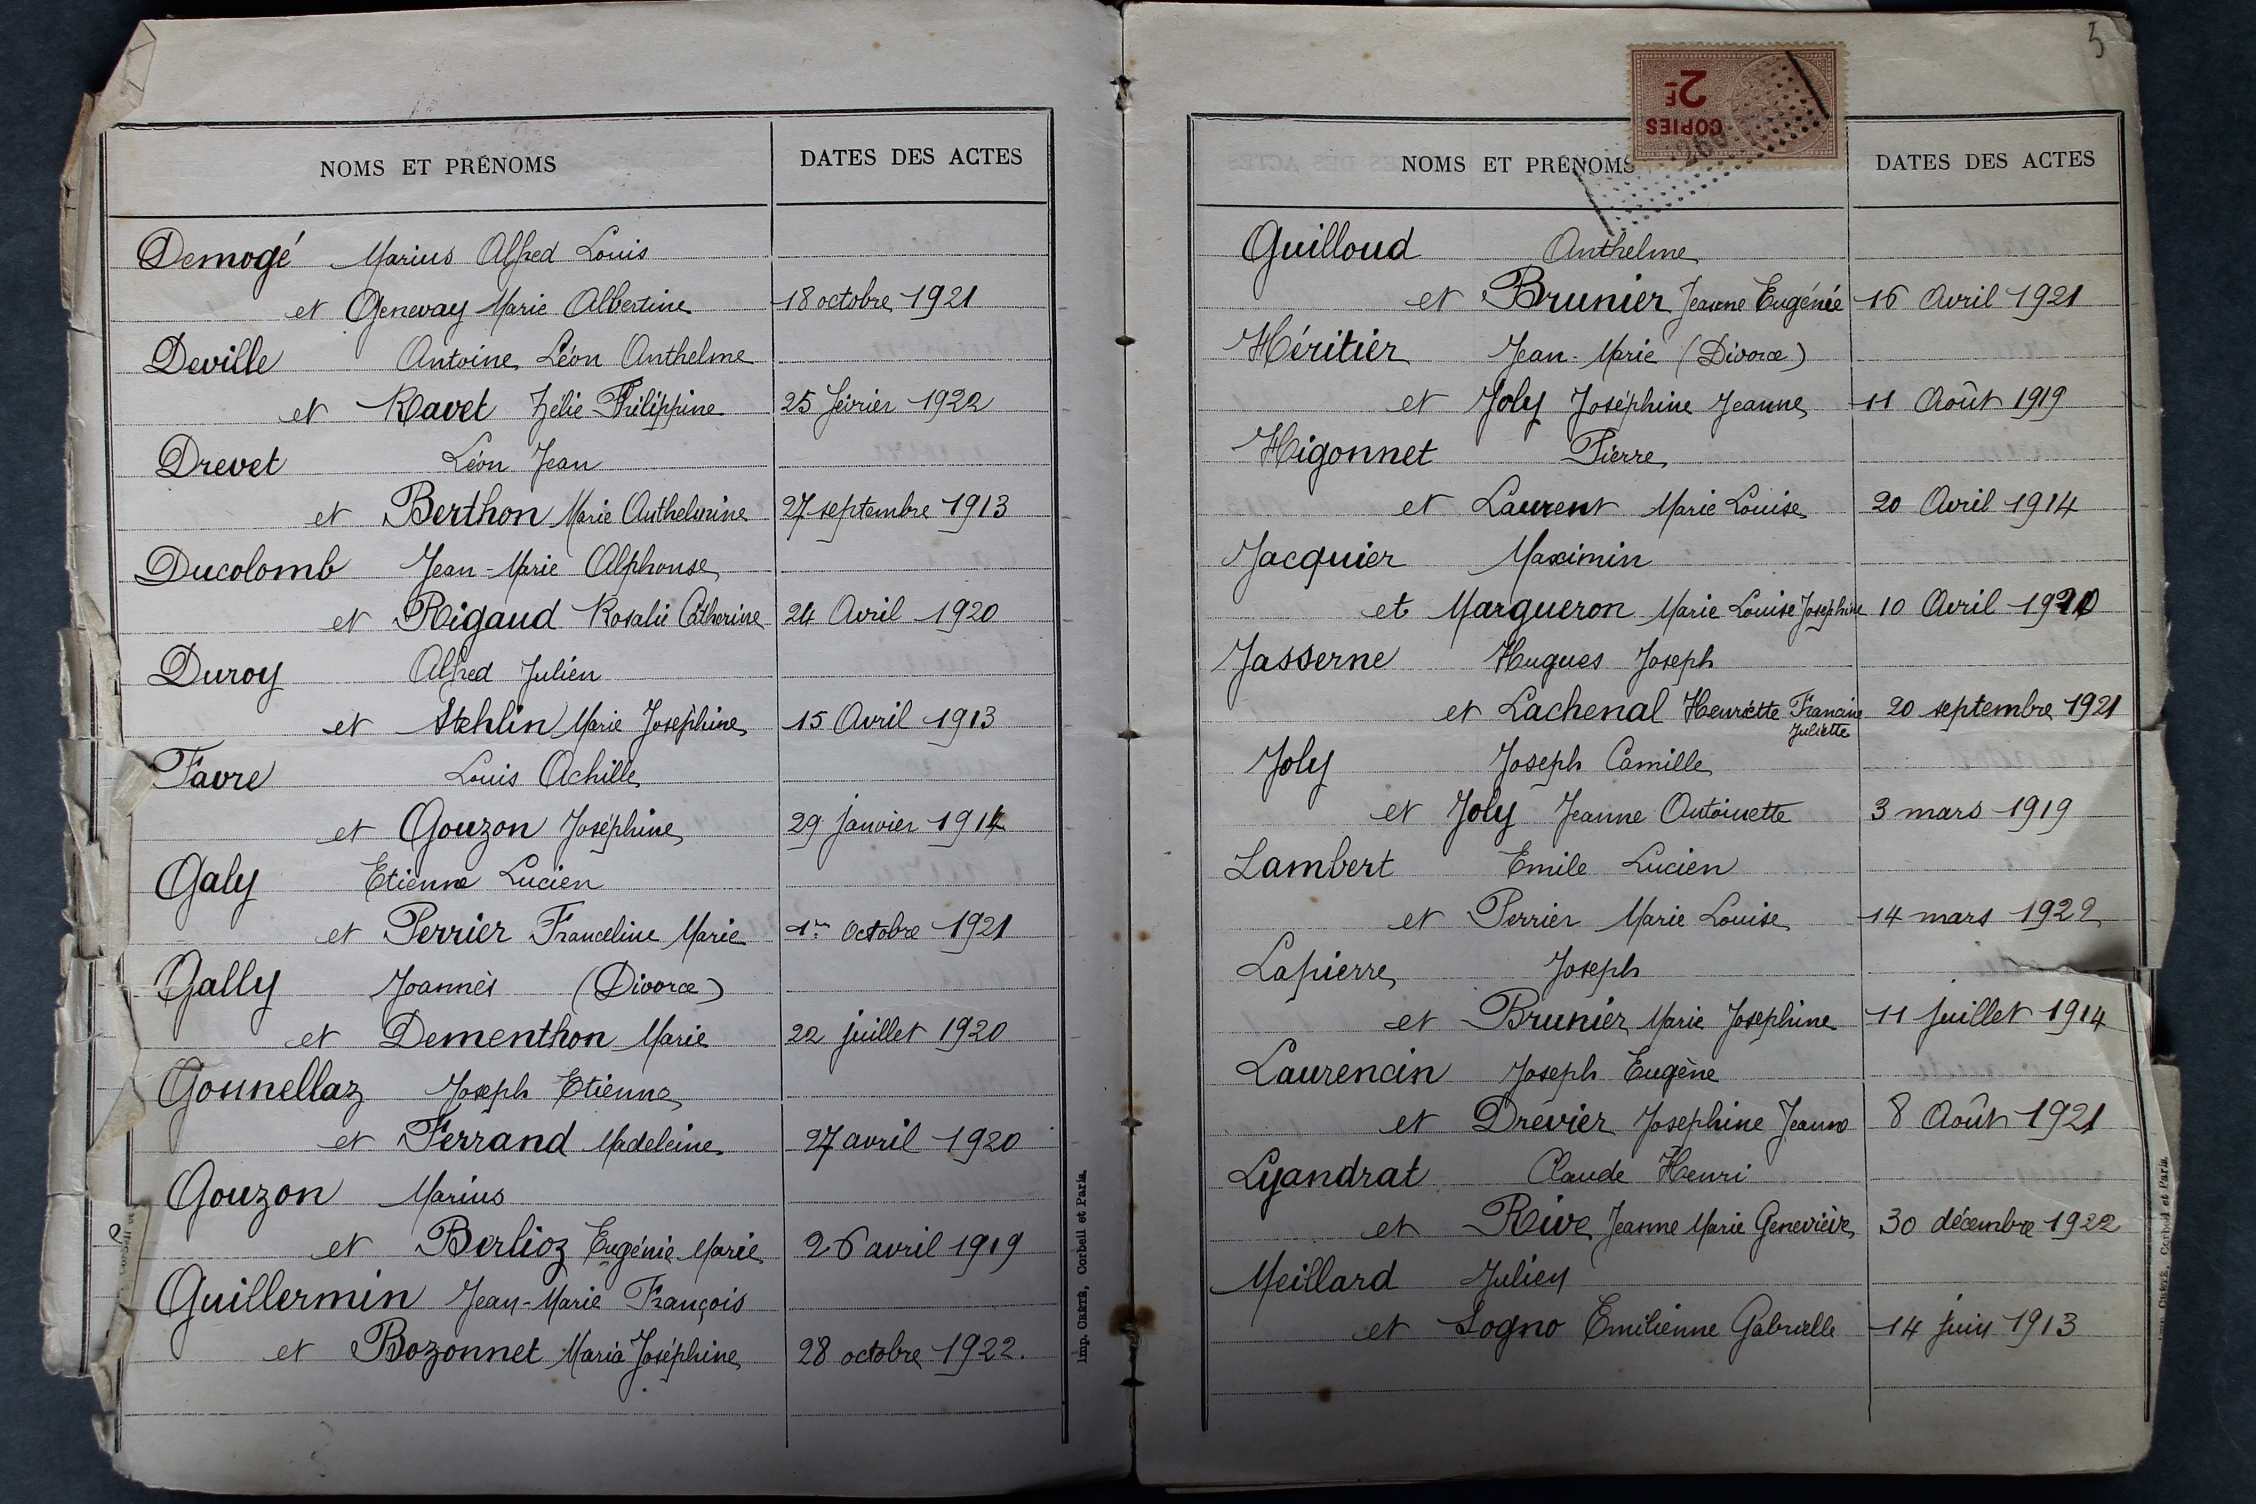 NOMS ET PRÉNOMS DATES DES ACTES
Demogé Marius Alfred Louis
et Genevay Marie Albertine 18 octobre 1921
Deville Antoine Léon Anthelme
et Ravet Zélie Philippine 25 février 1922
Drevet Léon Jean
et Berthon Marie Anthelmine 27 septembre 1913
Ducolomb Jean-Marie Alphonse
et Rigaud Rosalie Catherine 24 Avril 1920
Duroy Alfred Julien
et Stehlin Marie Joséphine 15 Avril 1913
Favre Louis Achille
et Gouzon Joséphine 29 janvier 1914
Galy Etienne Lucien
et Perrier Franceline Marie 1er Octobre 1921
Gally Joannès (Divorce)
et Dementhon Marie 22 juillet 1920
Gonnellaz Joseph Etienne
et Ferrand Madeleine 27 avril 1920
Gouzon Marius
et Berlioz Eugénie Marie 26 avril 1919
Guillermin Jean-Marie François
et Bozonnet Maria Joséphine 28 octobre 1922.
Imp. CRÉTÉ, Corbeil et Paris.
5
2F
COPIES
NOMS ET PRÉNOMS DATES DES ACTES
Guilloud Anthelme
et Brunier Jeanne Eugénie 16 Avril 1921
Héritier Jean-Marie (Divorce)
et Joly Joséphine Jeanne 11 Août 1919
Higonnet Pierre
et Laurent Marie Louise 20 Avril 1914
Jacquier Maximin
et Margueron Marie Louise Joséphine 10 Avril
Jasserne Hugues Joseph
et Lachenal Henriette Francine 20 septembre 1921
Juliette
Joly Joseph Camille
et Joly Jeanne Antoinette 3 mars 1919
Lambert Emile Lucien
et Perrier Marie Louise 14 mars 1922
Lapierre Joseph
et Brunier Marie Josephine 11 juillet 1914
Laurencin Joseph Eugène
et Drevier Josephine Jeanne 8 Août 1921
Lyandrat Claude Henri
et Rive Jeanne Marie Geneviève 30 décembre 1922
Meillard Julien
et Sogno Emilienne Gabrielle 14 juin 1913
Imp. CRÉTÉ, Corbeil et Paris.